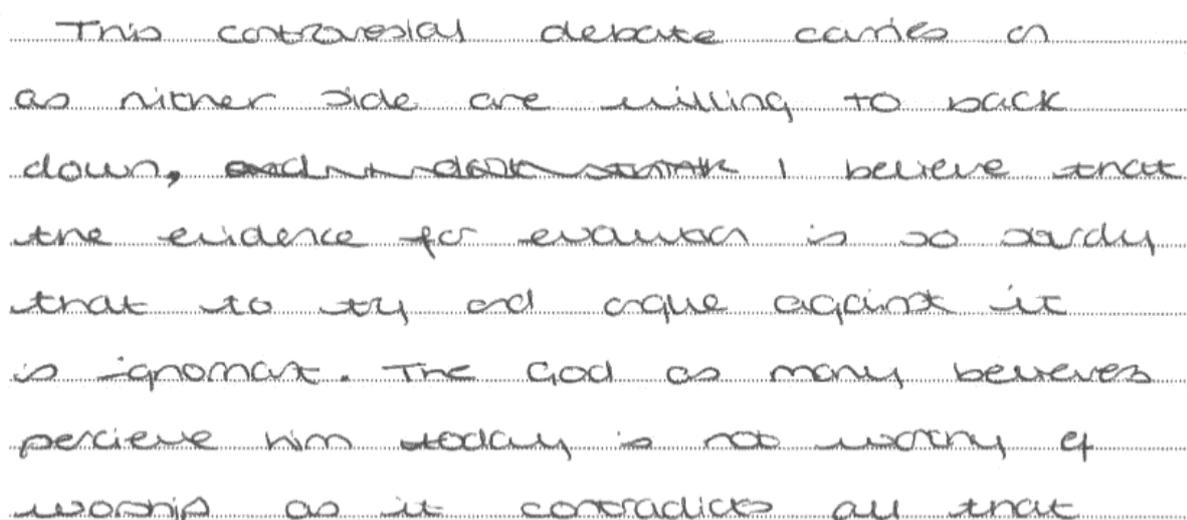 This contraversial debate carries on
as nither side are willing to back
down, I believe that
the evidence for evolution is so sturdy
that to try and argue against it
is ignorant. The God as many believers
percieve him today is not worthy of
worship as it contradicts all that